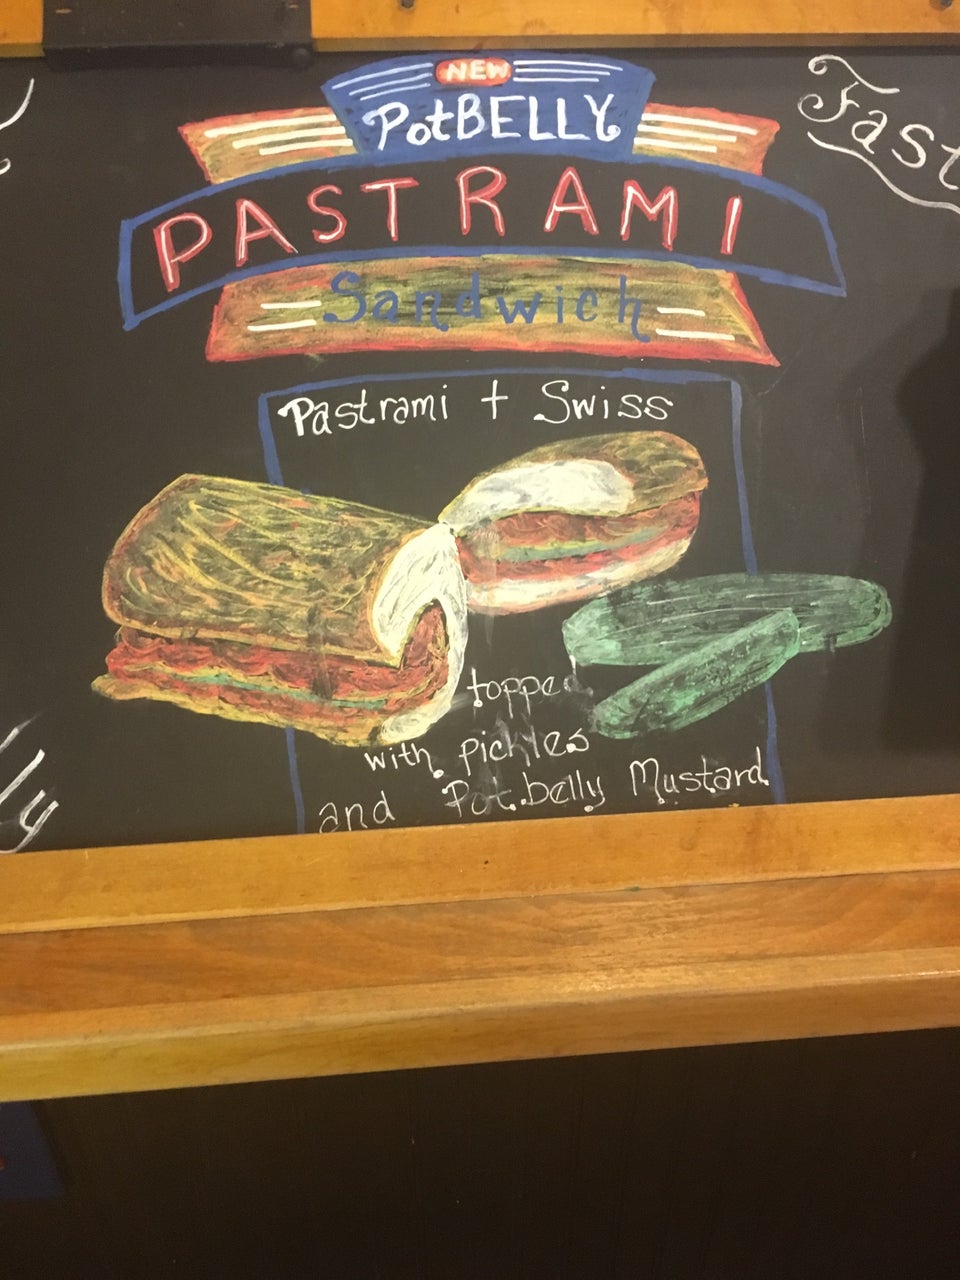 NEW
PotBELLY
PASTRAMI
Sandwich
Fast
Pastrami + Swiss
topped
with pickles
and Potbelly Mustard
ly